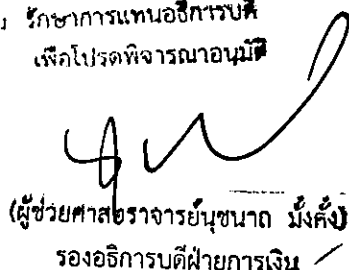 รักษาการแทนอธิการบดี
เพื่อโปรดพิจารณาอนุมัติ
(ผู้ช่วยศาสตราจารย์นุชนาถ มั่งคั่ง)
รองอธิการบดีฝ่ายการเงิน